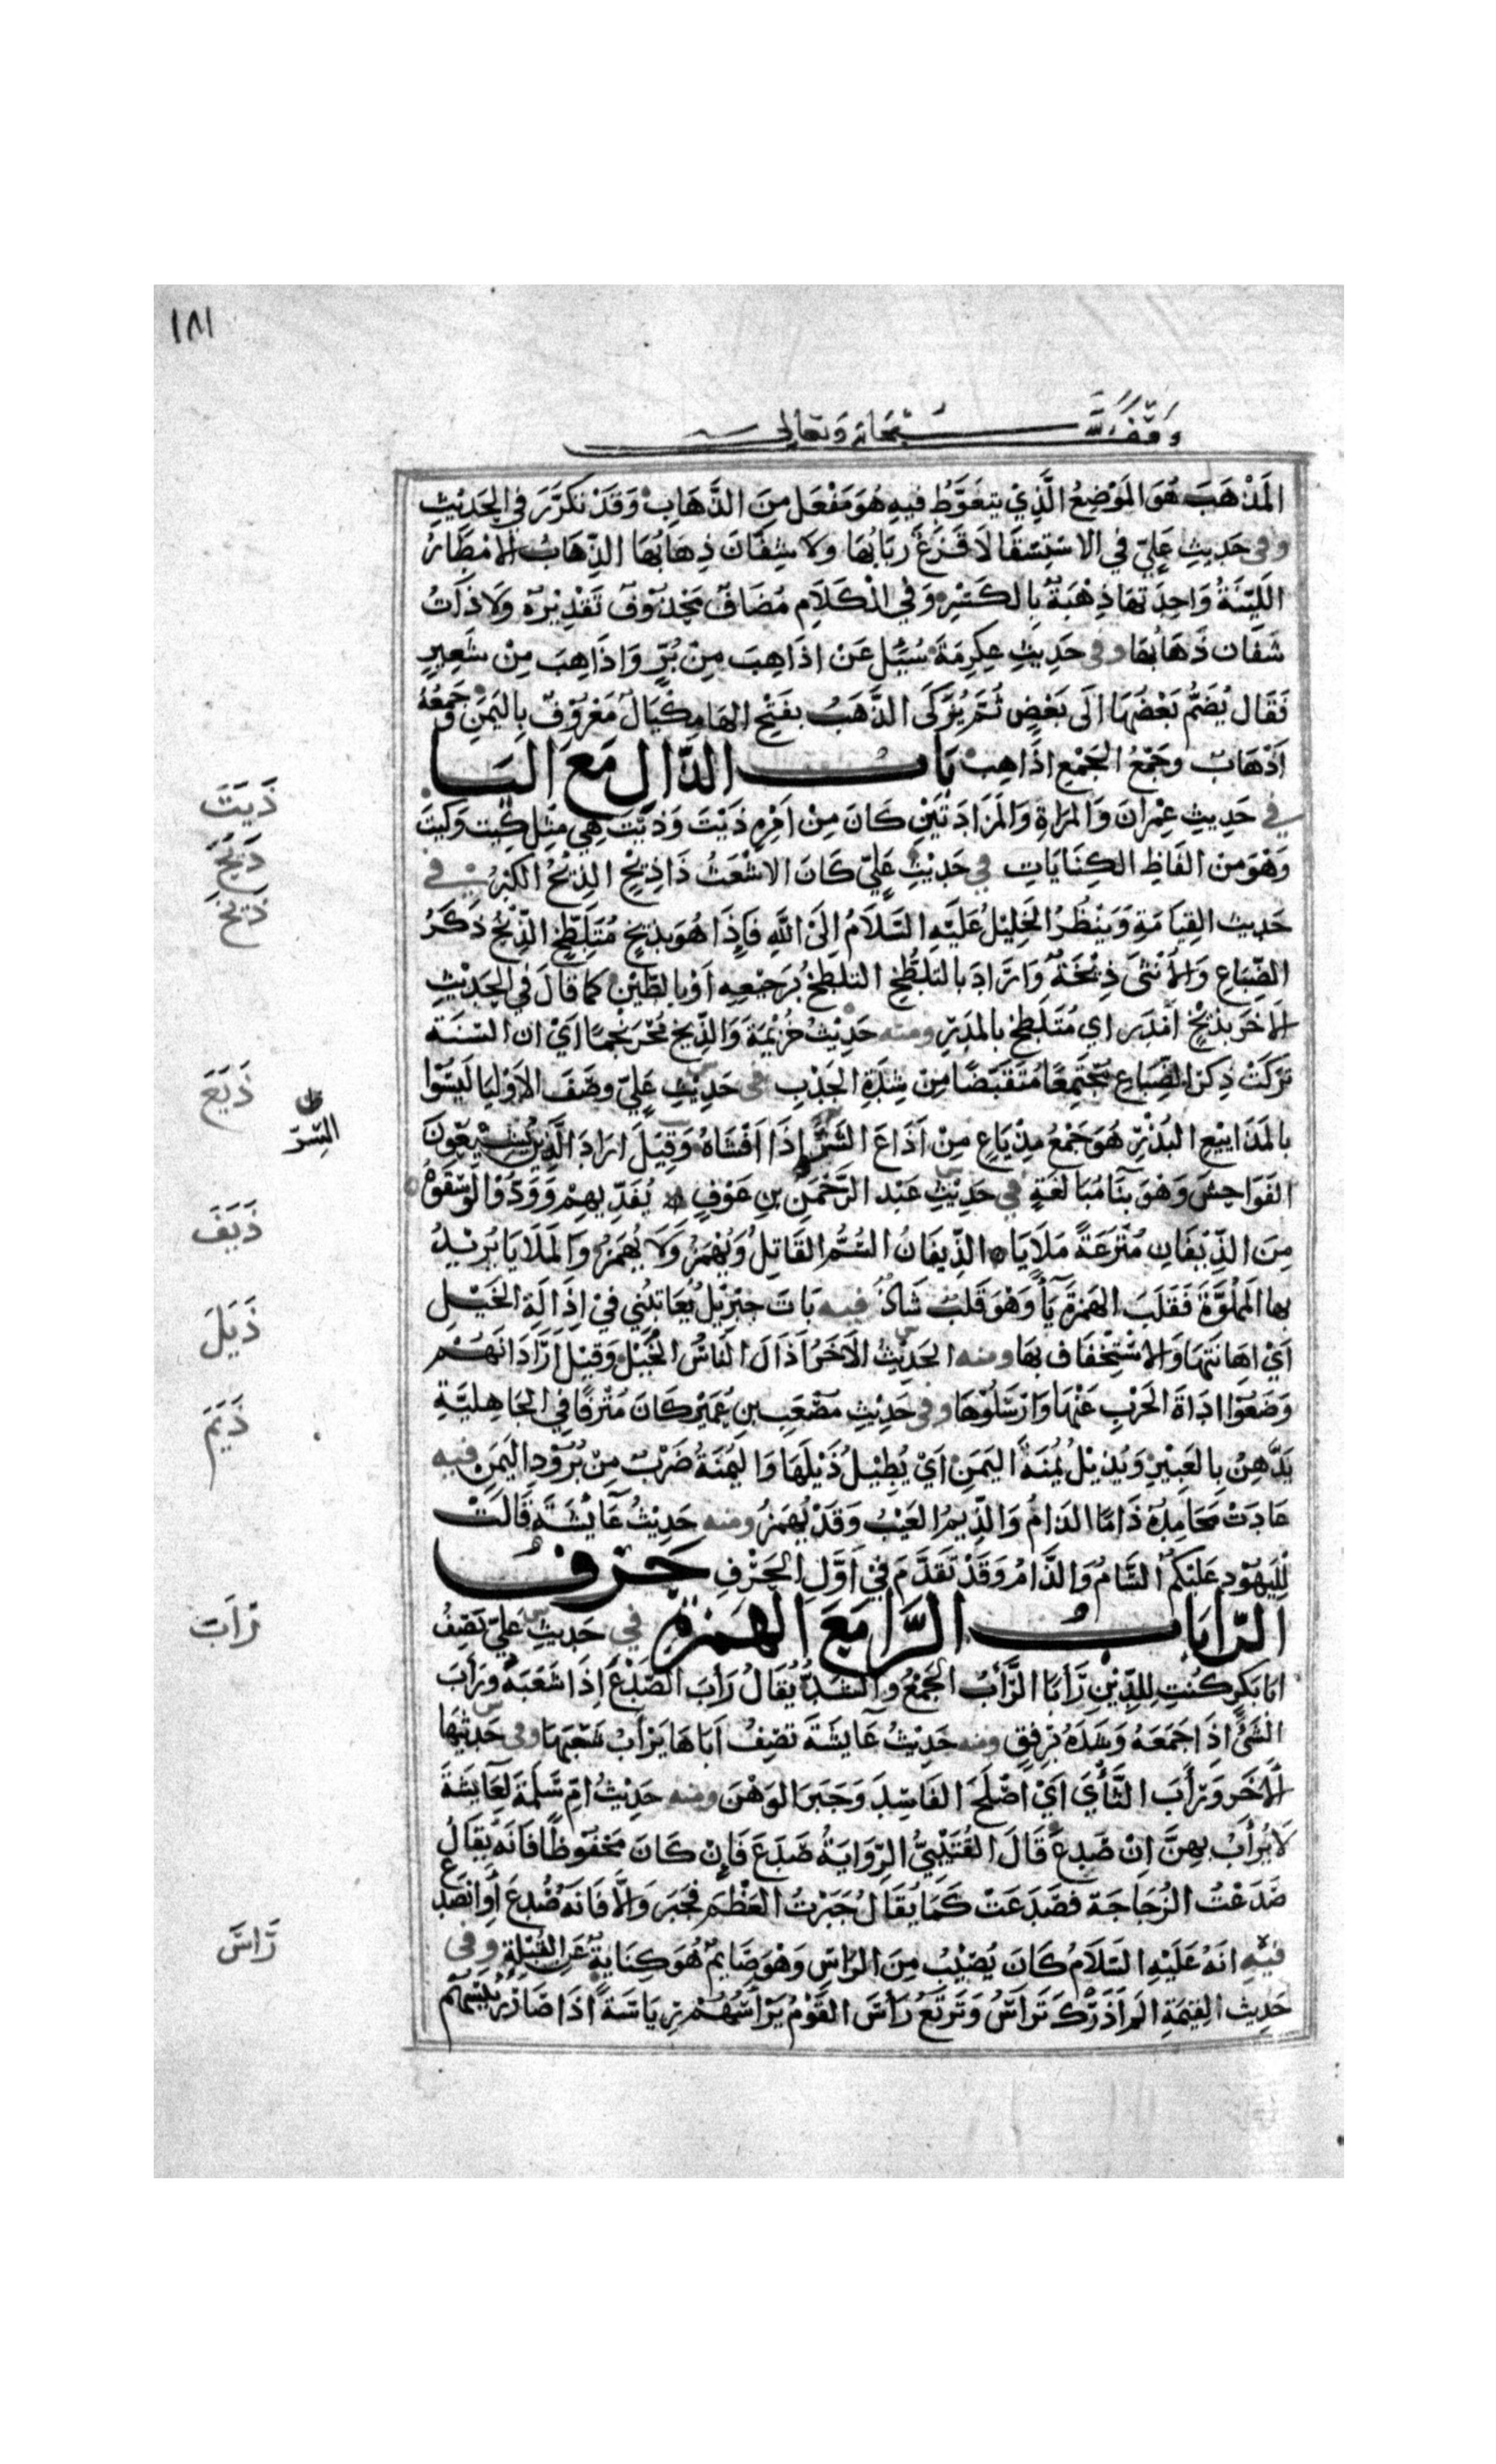 ١٨١
وقف لله سبحانه وتعالى
المَذْهَبَ هُوَ المَوْضِعُ الَّذِيْ يتغَوَّطُ فيهِ هُوَ مَفْعَل مِنَ الذَّهَابِ وَقَدْ تكَرَّرَ في الحَدِيْثِ
وفى حَدِيثِ عَلِيّ في الاسْتِسْقَا لَا قَزَعٌ رَبَابُهَا وَلَا شِفَّانَ ذِهَابُهَا الذِّهَابُ الامْطَارُ
اللَّيِّنَةُ وَاحِدَتهَا ذِهْبَةٌ بِالكَسْرِ وَفي الْكَلَامِ مُضَافٌ مَحْذُوْفٌ تَقْدِيْرُهُ وَلَا ذَاتُ
شَفَّان ذَهَابُهَا وفى حَدِيثِ عِكرِمَةَ سُئِلَ عَنْ اذَاهِبَ مِنْ بُرٍّ وَاذَاهِبَ مِنْ شَعِيرٍ
فَقَال يُضَمُّ بَعْضُهَا الَى بَعْضٍ ثُمَّ يُزَكَّى الذَّهَبُ بفَتْحِ الهَا مِكْيَالٌ مَعْرُوْفٌ بِاليَمَنِ وَجَمعُهُ
اَذْهَابٌ وجَمْعُ الجَمْعِ اذَاهِبُ بَابُ الذَّالِ مَعَ اليَا
في حَدِيثِ عِمْرانَ وَالمَرْاةِ وَالمَزَادَتَيْنِ كَانَ مِنْ اَمْرِهِ ذَيْتَ وَذَيْتَ هِيَ مِثْل كَيْتَ وَكَيْتَ
وَهْوَ مِن الفَاظِ الكِنَايَاتِ في حَدِيْثِ عَلِيّ كَانَ الاشْعَثُ ذَا ذِيْحٍ الذِّيْحُ الكِبْرُ في
حَدِيث القِيَامَةِ وَيَنْظُرُ الخَلِيْلُ عَلَيْهِ السَّلَامُ الَى اللّٰهِ فَاِذَا هُوَ بِذِيْخٍ مُتَلَطِّخٍ الذِّيْخُ ذَكَرُ
الضِّبَاعِ وَالأُنْثَى ذِيْخَةٌ وَارَادَ بالتَلَطُّخِ التلَطُّخَ بُرَجِيْعِهِ اَوْ بالطّيْنِ كما قالَ في الحَدِيْثِ
الاخَر بذِيْخٍ اَمْدَر اي مُتَلَطِّخ بالمَدَرِ ومنه حَدِيْثُ خُزَيْمَةَ وَالذِّيخ مُحْرَنْجِمًا اَيْ ان السّنَةَ
تَرَكَتْ ذكرَ الضِّبَاعِ مُجْتَمِعًا مُتَقَبِّضًا مِنْ شِدَّةِ الجَدْبِ فى حَدِيْثِ عَلِيّ وصَفَ الاوْلِيَا لَيْسُوا
بالمَذَايِيْعِ البُذْرِ هُوَ جَمْعُ مِذْيَاعٍ مِنْ اَذَاعَ الشَّرَّ اِذَا اَفْشَاهُ وَقِيْلَ ارَادَ الَّذِينَ يُشِيْعُونَ
الفَوَاحِشَ وَهْوَ بِنَا مُبَالغَةٍ في حَدِيْثِ عَبْد الرَّحْمٰنِ بنِ عَوْفٍ يُفَدِّيهِمْ وَوَدُّوْا لَوْ سَقَوْهُ
مِنَ الذِّيْفَانِ مُتْرَعَةً مَلَايَا الذِّيفَانُ السُّمُّ القَاتِلُ وَيُهْمَزُ وَلَا يُهْمَزُ وَالمَلَايَا يُرِيْدُ
بها المَمْلُوَّةَ فَقَلَبَ الهَمْزَةَ يَأً وَهْوَ قَلْبٌ شَاذٌّ فيه بَاتَ جِبْرِيْلُ يُعَاتِبُنِي فيْ اِذَالَةِ الخَيْلِ
اَيْ اهَانَتِهَا وَالاسْتِخْفَاف بهَا ومنه الحَدِيْثُ الاخَرُ اَذَالَ النَاسُ الخَيْلَ وَقِيْلَ اَرَادَ انَّهُمْ
وَضَعُوْا ادَاةَ الحَرْبِ عَنْهَا وَارْسَلُوْهَا وفى حَدِيْثِ مصْعَبِ بنِ عُمَيْر كَانَ مُتْرَفًا في الجَاهِليَّةِ
يَدَّهِنُ بِالعَبِيْرِ وَيُذِيْلُ يُمْنَةَ اليَمَنِ اَيْ يُطِيْلُ ذَيْلَهَا وَاليُمْنَةُ ضَرْبٌ مِنْ بُرُوْدِ اليَمَنِ فيه
عَادَتْ مَحَامِدُهُ ذَامًا الذامُ وَالذِّيمُ العَيْبُ وَقَدْ يُهمَزُ ومنه حَدِيْثُ عَايْشَةَ قَالَتْ
لِلْيَهُوْدِ عَلَيْكُمُ السَّامُ وَالذَّامُ وَقَدْ تَقَدَّمَ فِيْ اَوَّلِ الحَرْفِ حَرْفُ
الرَّا بَابُ الرَّا مَعَ الهَمزةِ في حَدِيثِ عَلِيّ يَصِفُ
ابَا بكرٍ كُنْتَ لِلدِّيْنِ رَأبًا الرَّأبُ الجَمْعُ وَالشَدُّ يُقَالُ رَأبَ الصَّدْعَ اِذَا شَعَبَهُ وَرَأبَ
الشَيْءَ اِذَا جَمَعَهُ وَشَدَّهُ بِرِفقٍ ومنه حَدِيْثُ عَايْشَةَ تصِفُ اَبَاهَا يَرْأبُ شَعْبَهَا وفى حَدِيثِهَا
الاخَر وَرَأبَ الثَّأْيَ اَيْ اصْلَحَ الفَاسِدَ وَجَبَرَ الوَهْنَ ومنه حَدِيْثُ امّ سَلَمَةَ لِعَايْشَةَ
لَا يُرْأبُ بهِنَّ اِنْ صُدِعَ قَالَ القُتَيْبِيُّ الرِّوَايَةُ صَدَعَ فَاِنْ كَانَ مَحْفُوْظًا فَانَّهُ يُقَالُ
صَدَعْتُ الزُّجَاجَة فصَدَعَتْ كَمَا يُقَالُ جَبَرْتُ العَظْمَ فجَبَرَ وَالَّا فَانَّهُ صُدِعَ أَوِ انْصَدَعَ
فيْهِ انَّهُ عَلَيْهِ السَّلَامُ كَانَ يُصِيْبُ مِنَ الرَّاسِ وَهْوَ صَايِمٌ هُوَ كِنَايةٌ عَنِ القُبْلَةِ وفى
حَدِيث القِيٰمَةِ المْ اَذَرْكَ تَرَأسُ وَتَرْبَعُ رَأسَ القَوْمَ يَرْأسُهُمْ رِيَاسَةً اذَا صَارَ رَئِيْسَهُمْ
ذَيَتَ
ذَيَحَ
ذَيَخَ
ذَيَعَ
السِّرّ
ذَيَفَ
ذَيَلَ
ذَيَمَ
رَأبَ
رَأسَ